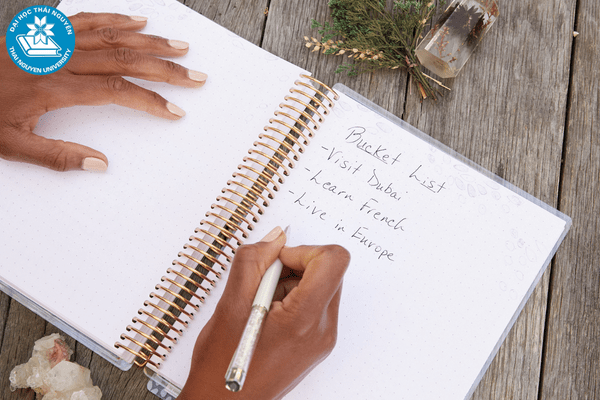 ĐẠI HỌC THÁI NGUYÊN
THAI NGUYEN UNIVERSITY
Bucket List
-Visit Dubai
-Learn French
-Live in Europe